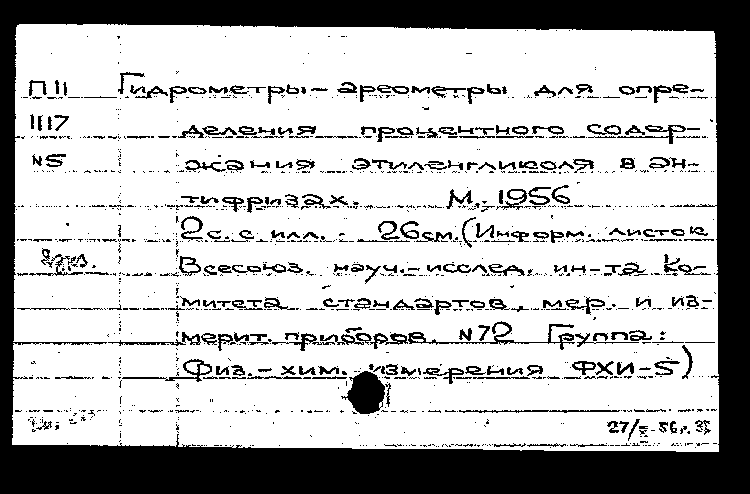 П 11 Гидрометры-ареометры для опре-
1117 деления процентного содер-
N5 жания этиленгликоля в ан-
тифризах. М., 1956
2 с. с илл. 26 см. (Информ. листок
Всесоюз. науч.-исслед. ин-та Ко-
митета стандартов, мер. и из-
мерит. приборов. N72 Группа:
Физ.-хим. измерения ФХИ-5)
27/ 56г.